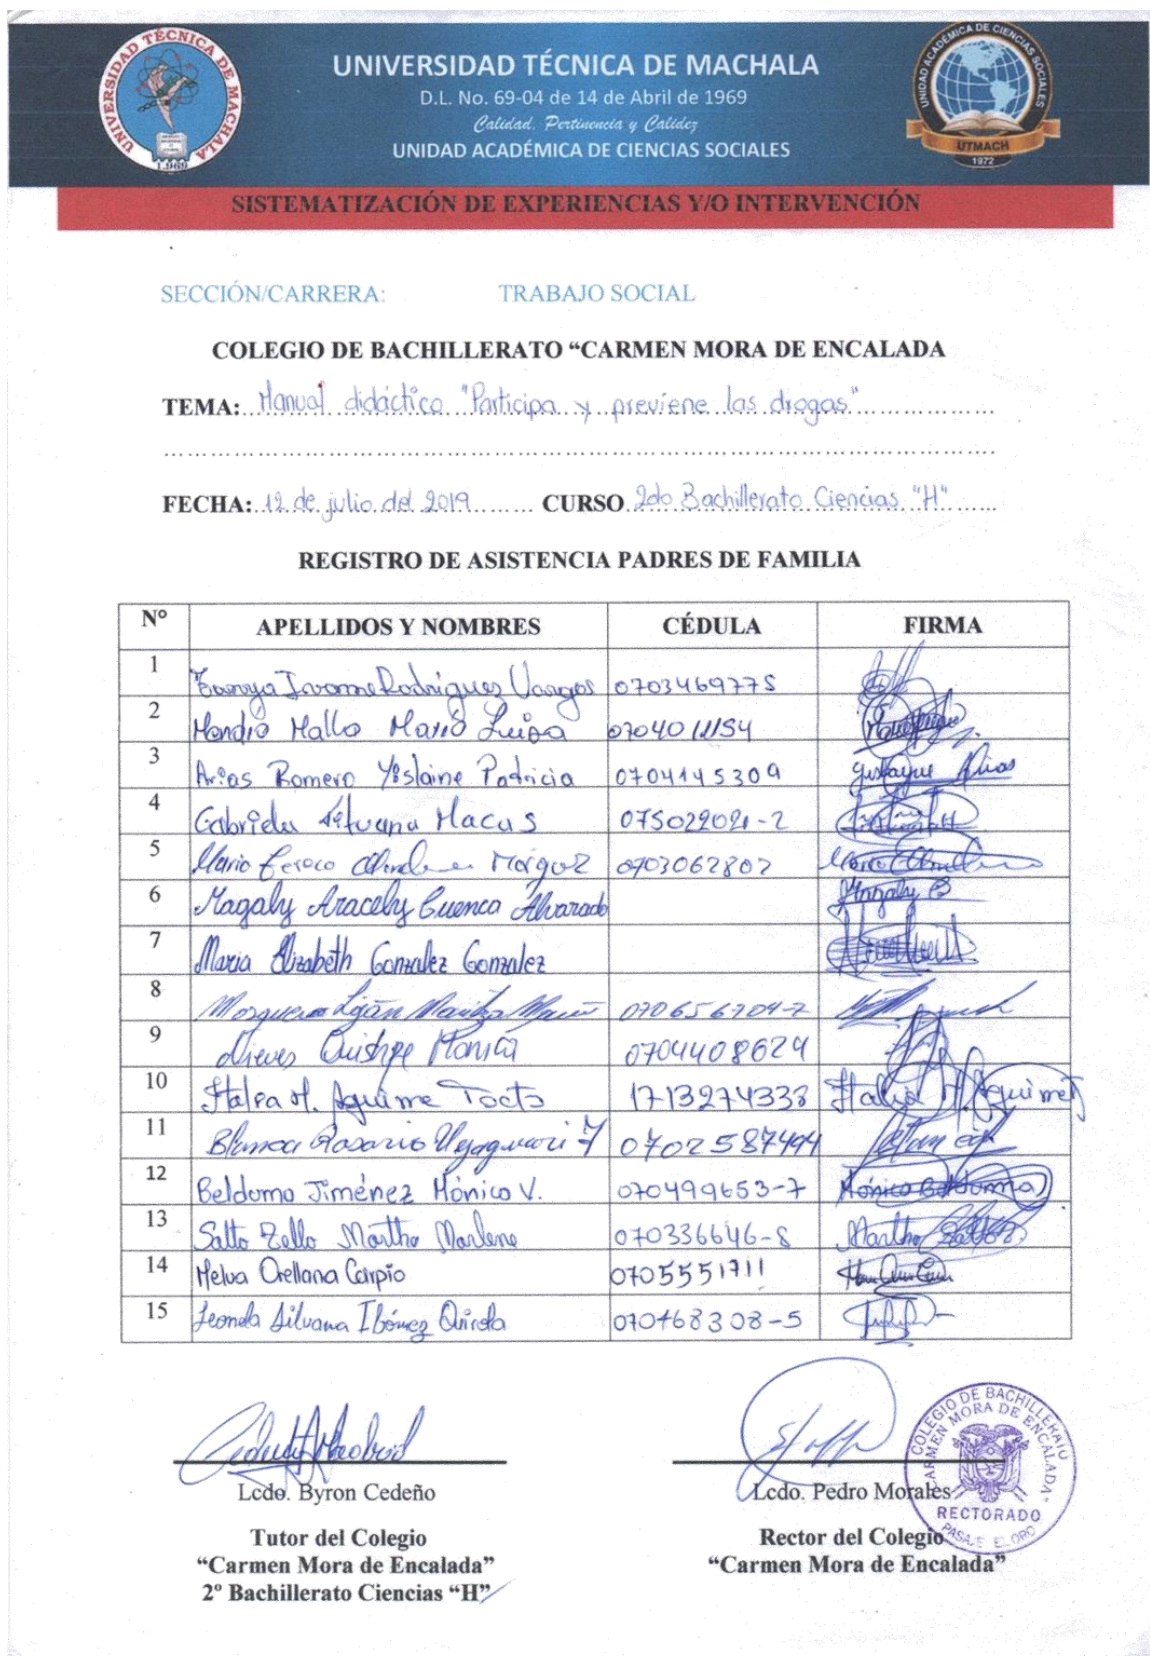 UNIVERSIDAD TÉCNICA DE MACHALA
1.969
UNIVERSIDAD TÉCNICA DE MACHALA
D.L. No. 69-04 de 14 de Abril de 1969
Calidad, Pertinencia y Calidez
UNIDAD ACADÉMICA DE CIENCIAS SOCIALES
UNIDAD ACADÉMICA DE CIENCIAS SOCIALES
UTMACH
1972
SISTEMATIZACIÓN DE EXPERIENCIAS Y/O INTERVENCIÓN
SECCIÓN/CARRERA: TRABAJO SOCIAL
COLEGIO DE BACHILLERATO “CARMEN MORA DE ENCALADA
TEMA: Manual didáctico "Participa y previene las drogas"
FECHA: 12 de julio del 2019 CURSO 2do Bachillerato Ciencias "H"
REGISTRO DE ASISTENCIA PADRES DE FAMILIA
Nº APELLIDOS Y NOMBRES CÉDULA FIRMA
1 Ivonne Rodriguez Vargas 0703469775
2 Luisa
3 Arias Romero Yislaine Patricia 0704145309 Arias
4 Gabriela Macas 075022021-2
5 0703062802
6 Magaly Aracely Cuenca Alvarado Magaly
7 Maria Elizabeth Gonzalez Gonzalez
8 Maritza
9 Nieves Quishpe Monica 0704408624
10 Italia M. Aguirre Tocto 1713274338 Italia M. Aguirre
11 Blanca Rosario 0702587494
12 Beldoma Jiménez Mónica V. 070499653-7 Mónica Beldoma
13 Salto Tello Martha Marlene 070336646-8 Martha Salto
14 Melva Orellana Carpio 0705551711
15 Silvana 070468308-5
Lcdo. Byron Cedeño
Tutor del Colegio
“Carmen Mora de Encalada”
2º Bachillerato Ciencias “H”
Lcdo. Pedro Morales
Rector del Colegio
“Carmen Mora de Encalada”
COLEGIO DE BACHILLERATO
"CARMEN MORA DE ENCALADA"
RECTORADO
PASAJE EL ORO